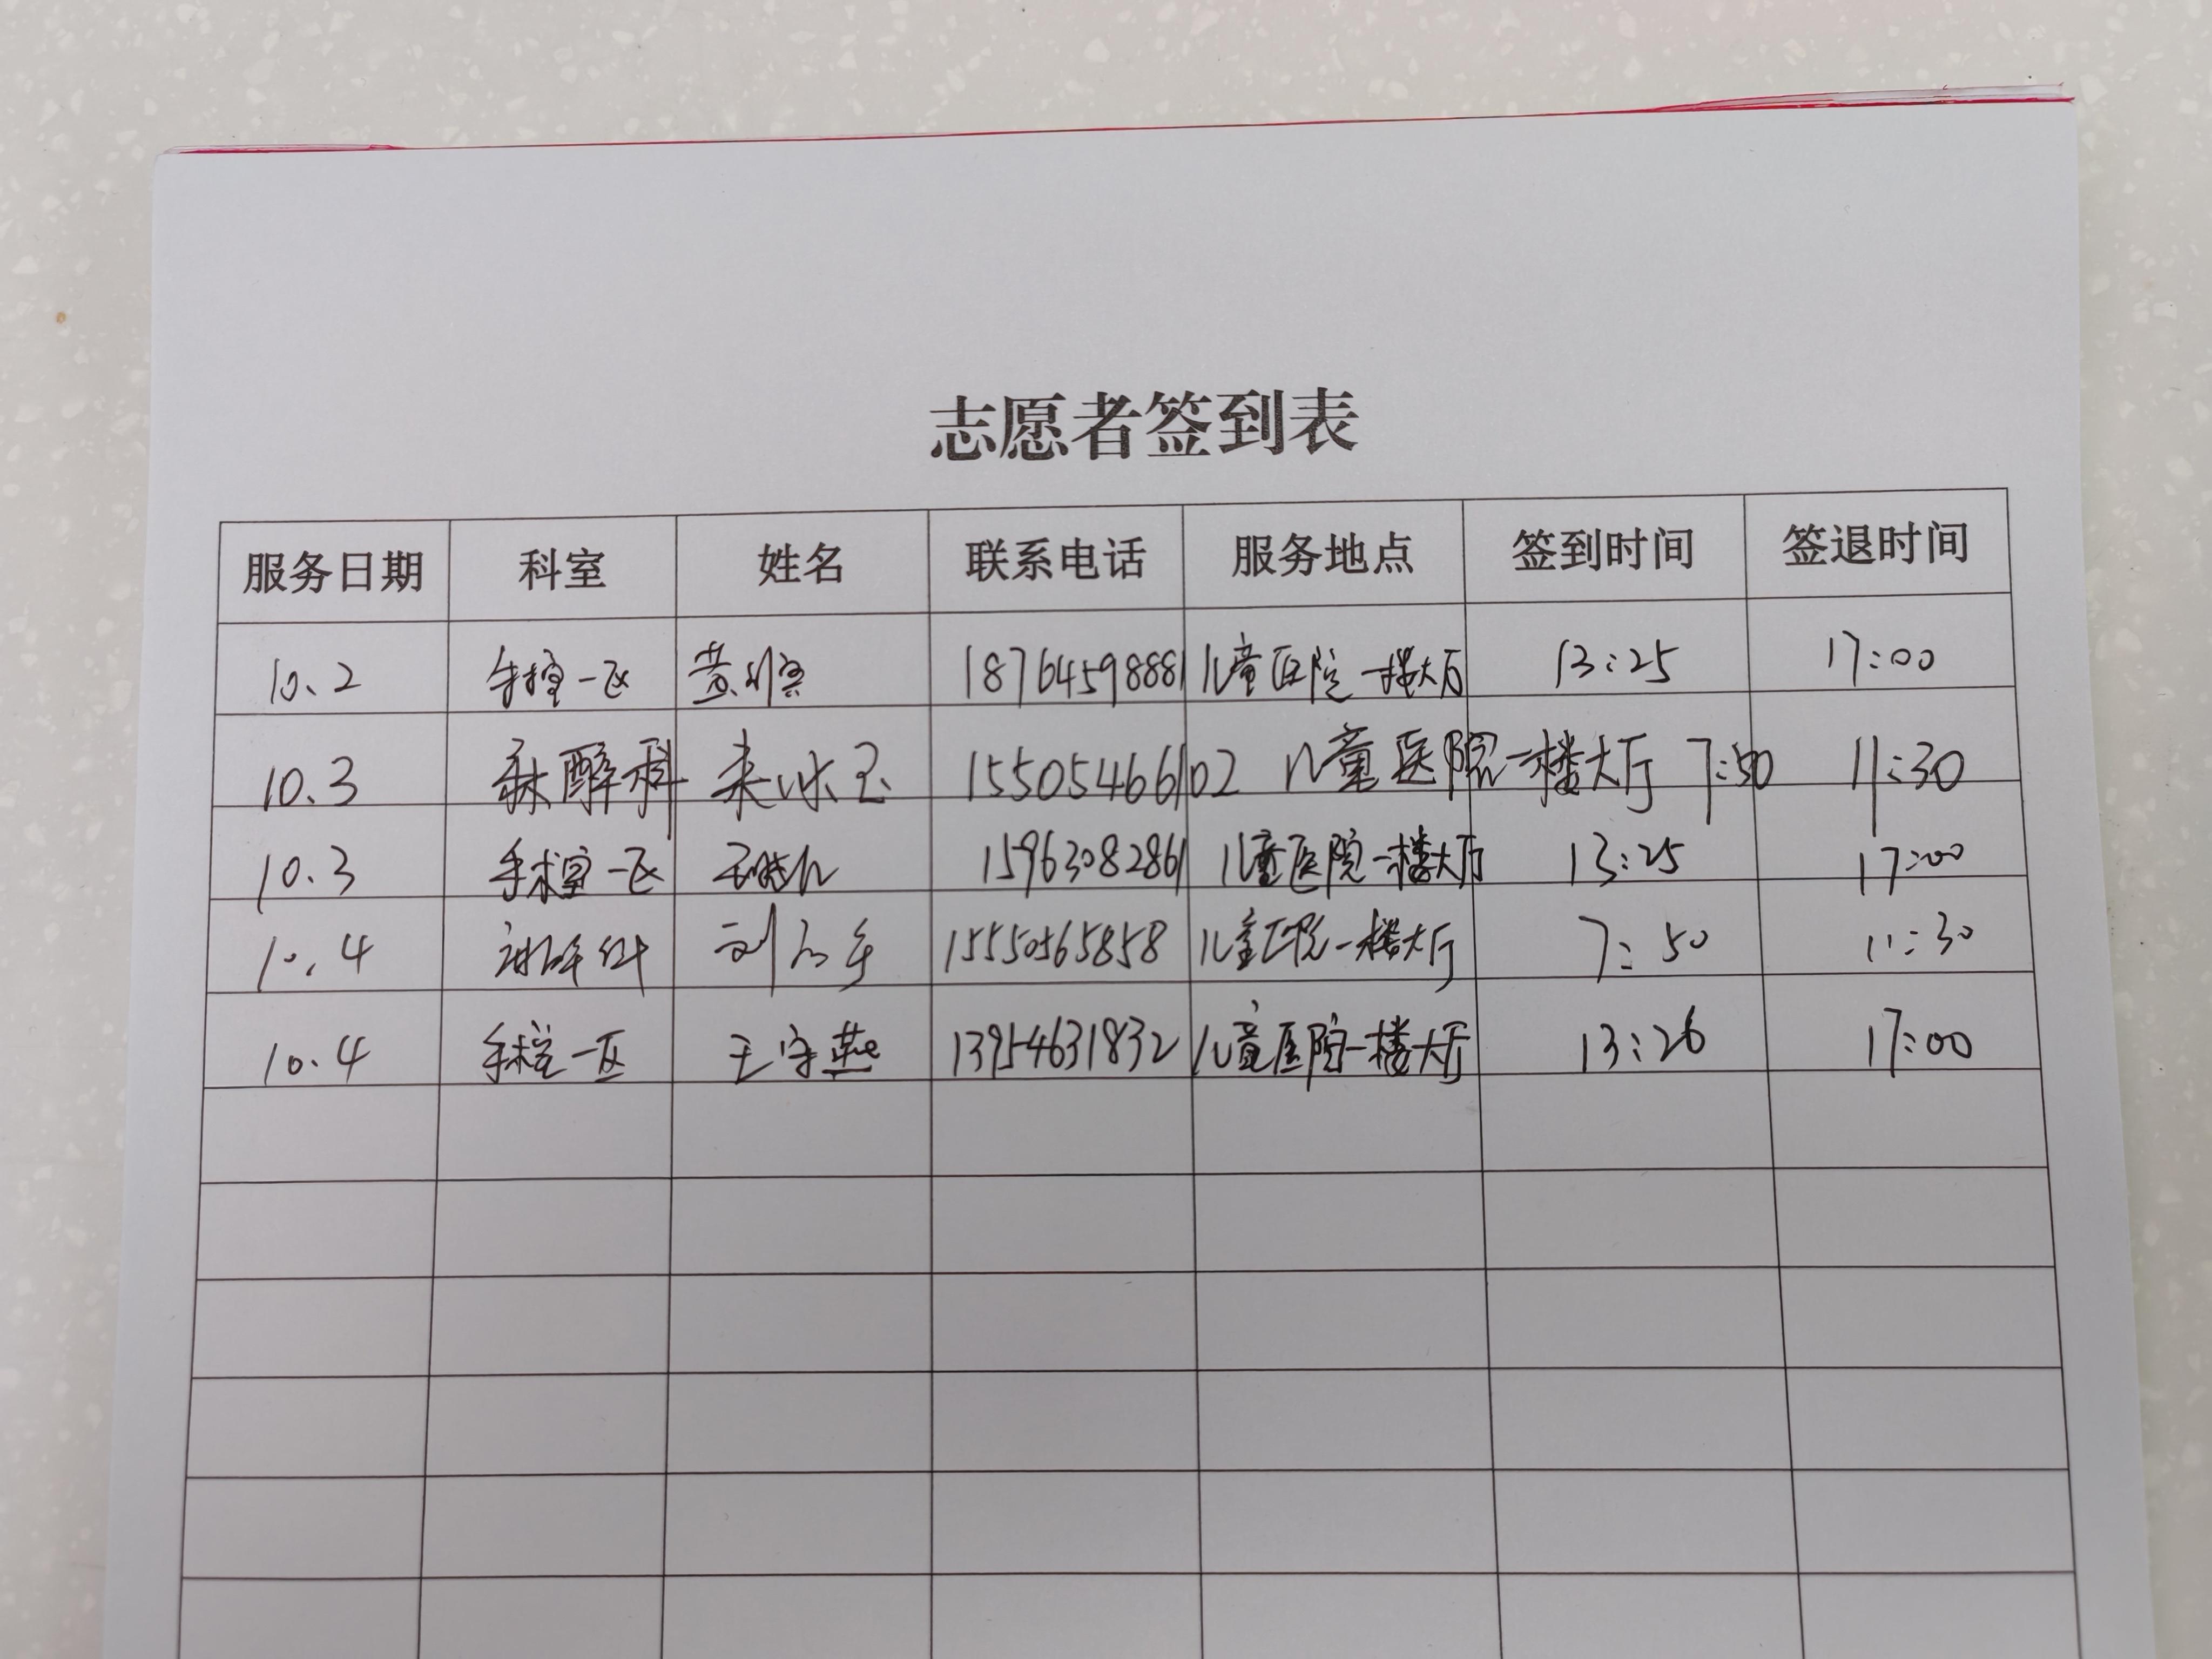 志愿者签到表
服务日期 科室 姓名 联系电话 服务地点 签到时间 签退时间
10.2 手术室一区 黄 18764598881 儿童医院一楼大厅 13:25 17:00
10.3 麻醉科 来冰玉 15505466102 儿童医院一楼大厅 7:50 11:30
10.3 手术室一区 15963082861 儿童医院一楼大厅 13:25 17:00
10.4 麻醉科 刘 15550565858 儿童医院一楼大厅 7:50 11:30
10.4 手术室一区 王守燕 13954631832 儿童医院一楼大厅 13:26 17:00